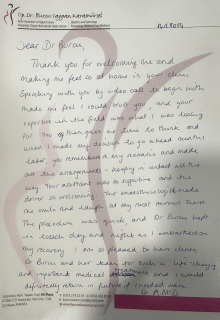 Op. Dr. Burcu
Dear Dr Burcu,
Thank you for welcoming me and
making me feel so at home in your clinic.
Speaking with you by video call to begin with
made me feel I could trust you and your
expertise in the field was what I was looking
for. You then gave me time to think and
when I made my decision to go ahead months
later, you remembered my scenario and made
all the arrangements - keeping in contact all the
way. Your assistant was so and the
driver so welcoming. Your anaesthesiologist made
me smile and at my most nervous time.
The procedure was quick, and Dr Burcu kept
in touch day and night as I embarked on
my recovery. I am so pleased to have chosen
Dr Burcu and her team for such a life-changing
and important medical procedure and I would
definitely return in future if I needed more.